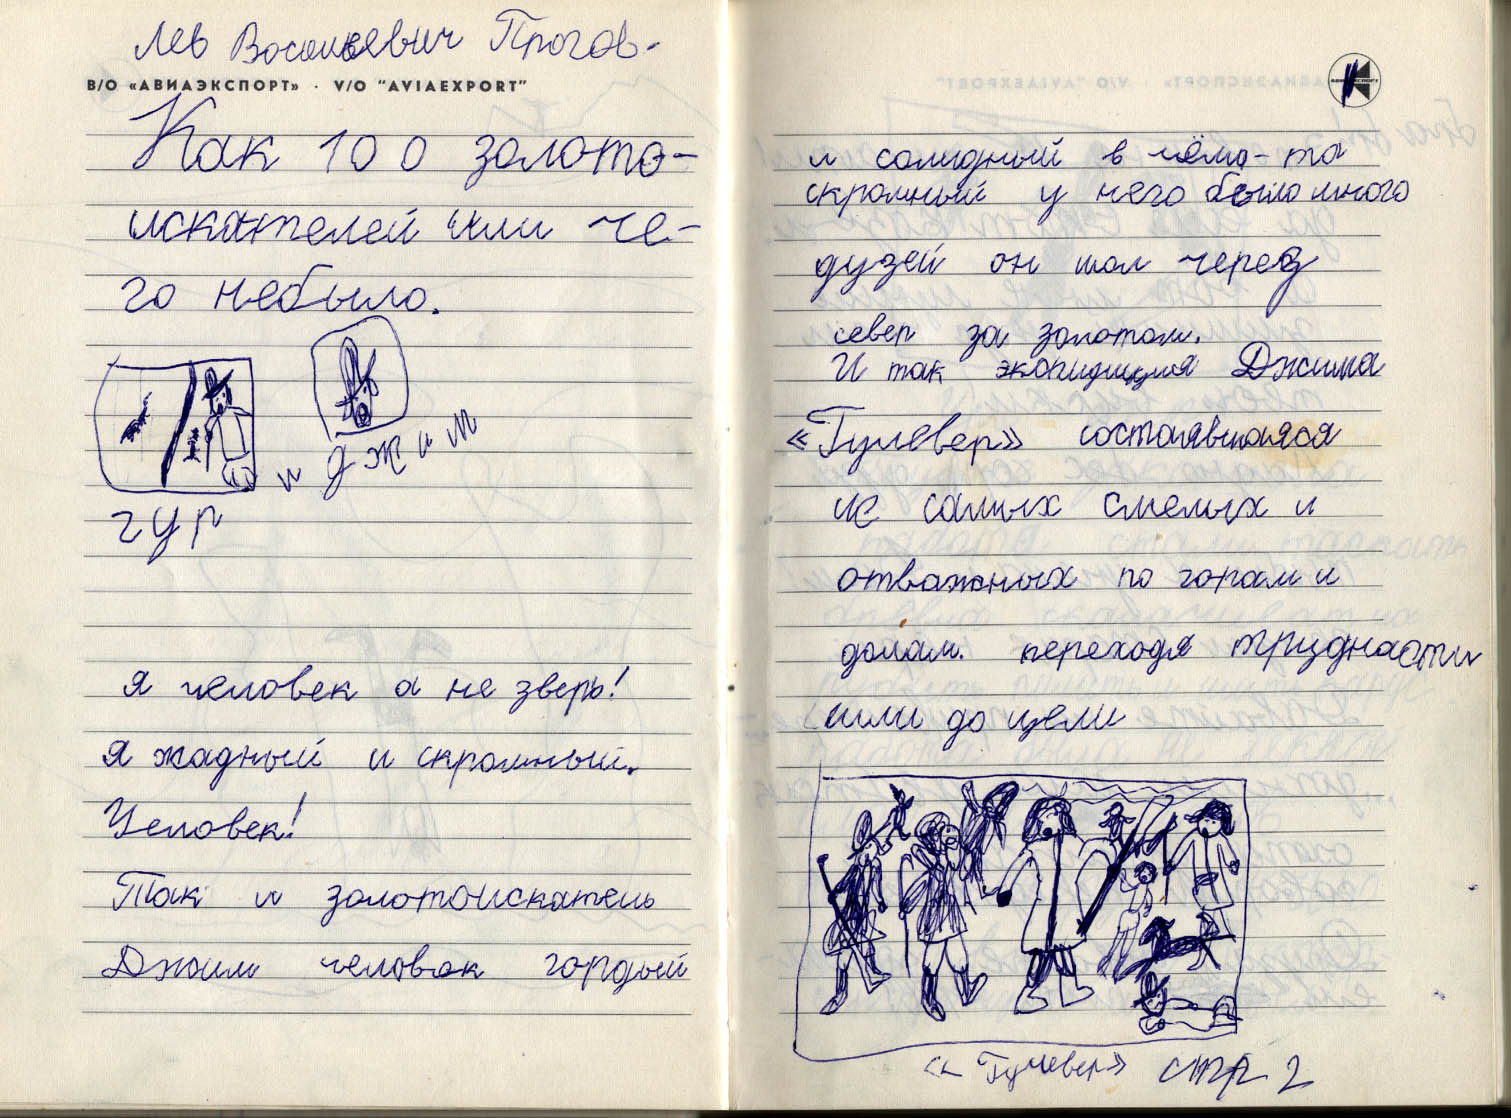 Лев Васильевич Прогов.
В/О «АВИАЭКСПОРТ» · V/O "AVIAEXPORT"
Как 100 золото-
искателей или че-
го небыло.
и джим
гур
я человек а не зверь!
я жадный и скромный.
Человек!
Так и золотоискатель
Джим человек гордый
и солидный в чёмо-та
скромный у него было много
дузей он шол через
север за золотом.
И так экспидиция Джима
«Гулевер» состоявшаяся
из самых смелых и
отважных по горам и
долам. переходя трудности
шли до цели
«Гулевер» стр 2